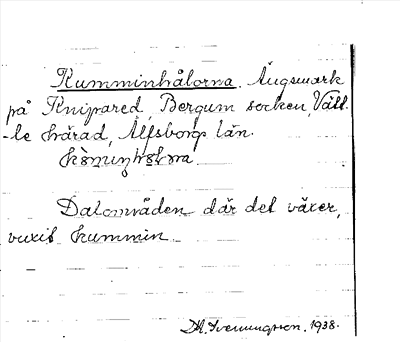 Kumminhålorna. Ängsmark
på Knipared, Bergum socken, Vätt-
-le härad, Älfsborgs län.
Dalområden där det växer,
vuxit kummin
1938.